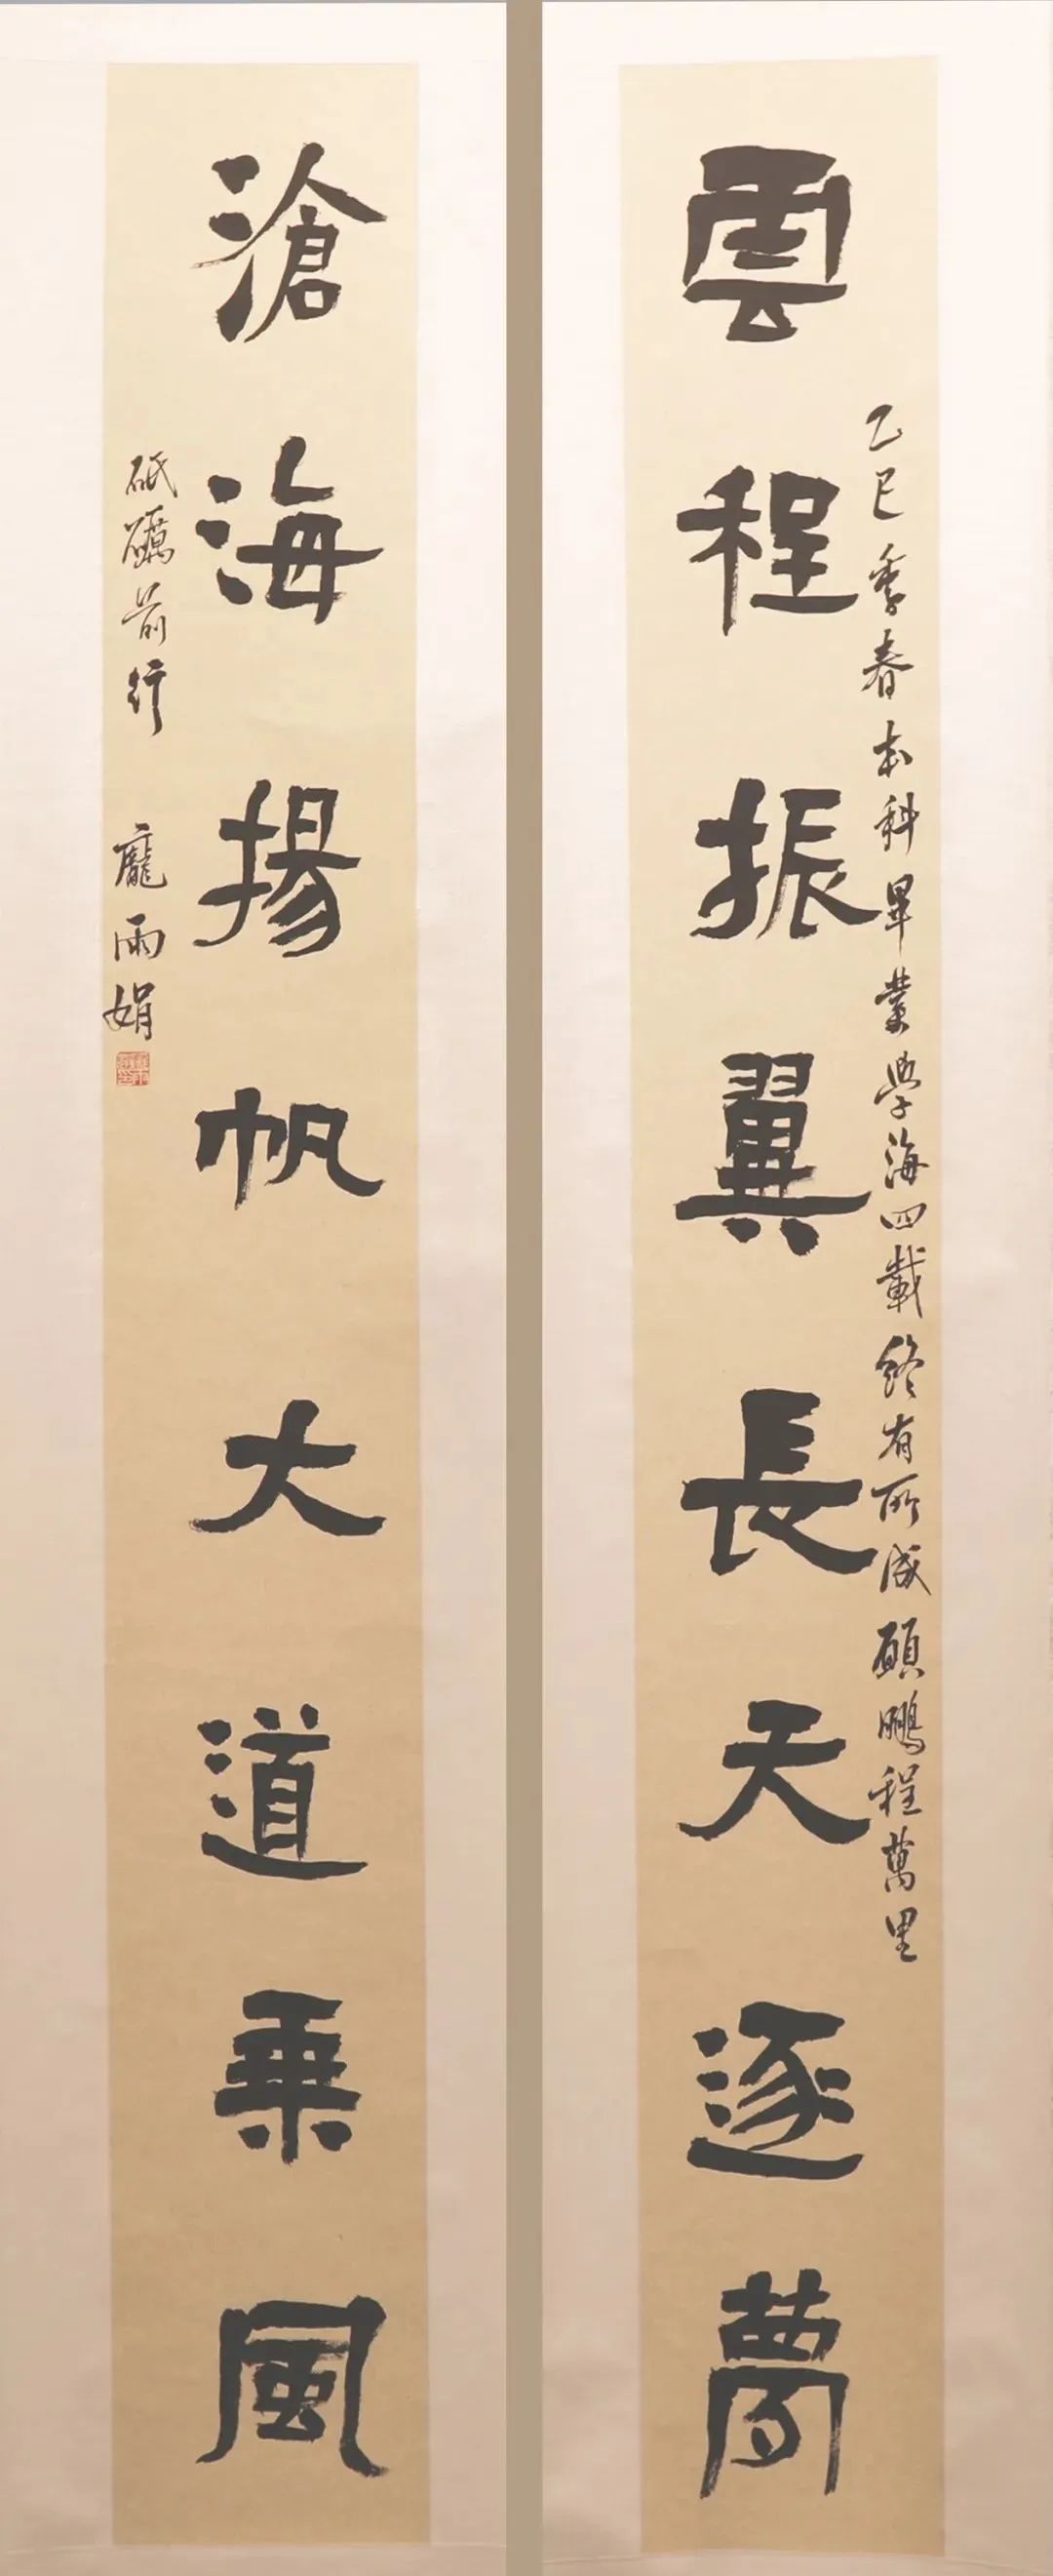 雲程振翼長天逐夢
乙巳季春本科畢業學海四載終有所成願鵬程萬里
滄海揚帆大道乗風
砥礪前行 龐雨娟